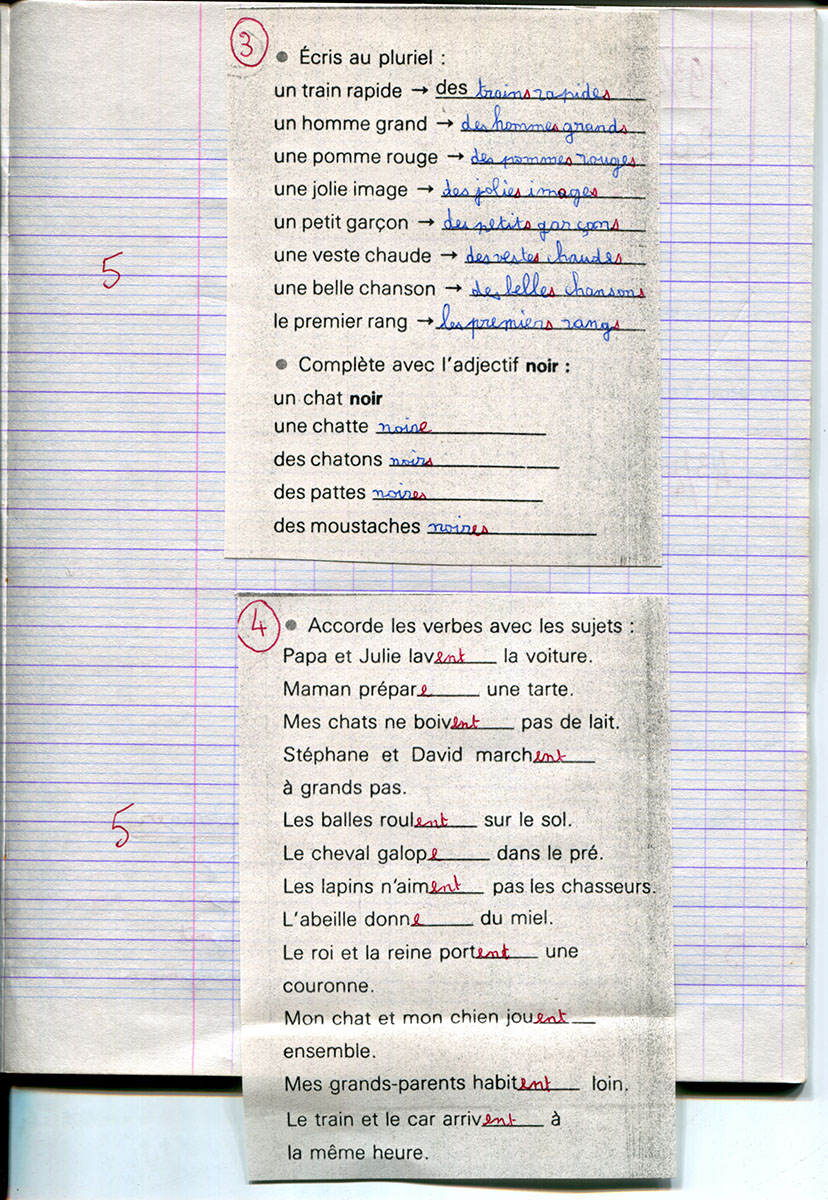 3
● Écris au pluriel :
un train rapide → des trains rapides
un homme grand → des hommes grands
une pomme rouge → des pommes rouges
une jolie image → des jolies images
un petit garçon → des petits garçons
une veste chaude → des vestes chaudes
une belle chanson → des belles chansons
le premier rang → les premiers rangs
5
● Complète avec l'adjectif noir :
un chat noir
une chatte noire
des chatons noirs
des pattes noires
des moustaches noires
4
● Accorde les verbes avec les sujets :
Papa et Julie lavent la voiture.
Maman prépare une tarte.
Mes chats ne boivent pas de lait.
Stéphane et David marchent
à grands pas.
5
Les balles roulent sur le sol.
Le cheval galope dans le pré.
Les lapins n'aiment pas les chasseurs.
L'abeille donne du miel.
Le roi et la reine portent une
couronne.
Mon chat et mon chien jouent
ensemble.
Mes grands-parents habitent loin.
Le train et le car arrivent à
la même heure.